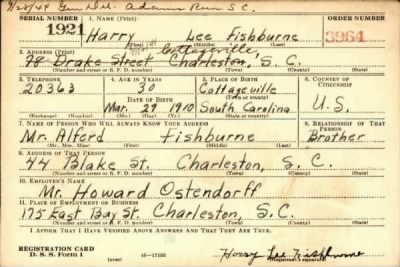 9/28/44 Gen Del. Adams Run S.C.
SERIAL NUMBER 1. NAME (Print) ORDER NUMBER
1921 Harry Lee Fishburne 3964
(First) (Middle) (Last)
Cottageville,
2. ADDRESS (Print)
78 Drake Street Charleston, S. C.
(Number and street or R. F. D. number) (Town) (County) (State)
3. TELEPHONE 4. AGE IN YEARS 5. PLACE OF BIRTH 6. COUNTRY OF CITIZENSHIP
20363 30 Cottageville
(Town or county)
DATE OF BIRTH
Mar. 29 1910 South Carolina U.S.
(Exchange) (Number) (Mo.) (Day) (Yr.) (State or country)
7. NAME OF PERSON WHO WILL ALWAYS KNOW YOUR ADDRESS 8. RELATIONSHIP OF THAT PERSON
Mr. Alferd Fishburne Brother
(Mr., Mrs., Miss) (First) (Middle) (Last)
9. ADDRESS OF THAT PERSON
44 Blake St. Charleston, S. C.
(Number and street or R. F. D. number) (Town) (County) (State)
10. EMPLOYER'S NAME
Mr. Howard Ostendorff
11. PLACE OF EMPLOYMENT OR BUSINESS
175 East Bay St. Charleston, S.C.
(Number and street or R. F. D. number) (Town) (County) (State)
I AFFIRM THAT I HAVE VERIFIED ABOVE ANSWERS AND THAT THEY ARE TRUE.
REGISTRATION CARD
D. S. S. FORM 1 (over) 16-17105 Harry Lee Fishburne